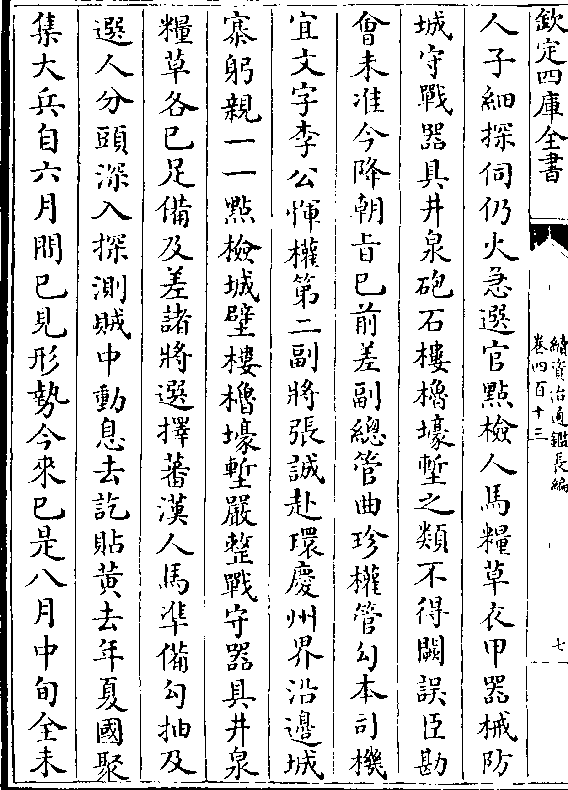 欽定四庫全書
續資治通鑑長編
卷四百十三
七
人子細探伺仍火急選官點檢人馬糧草衣甲器械防
城守戰器具井泉砲石樓櫓壕塹之類不得闕誤臣勘
會未准今降朝㫖已前差副總管曲珍權管勾本司機
宜文字李公惲權第二副將張誠赴環慶州界沿邊城
寨躬親一一點檢城壁樓櫓壕塹嚴整戰守器具井泉
糧草各已足備及差諸將選擇蕃漢人馬準備勾抽及
選人分頭深入探測賊中動息去訖貼黃去年夏國聚
集大兵自六月間已見形勢今來已是八月中旬全未